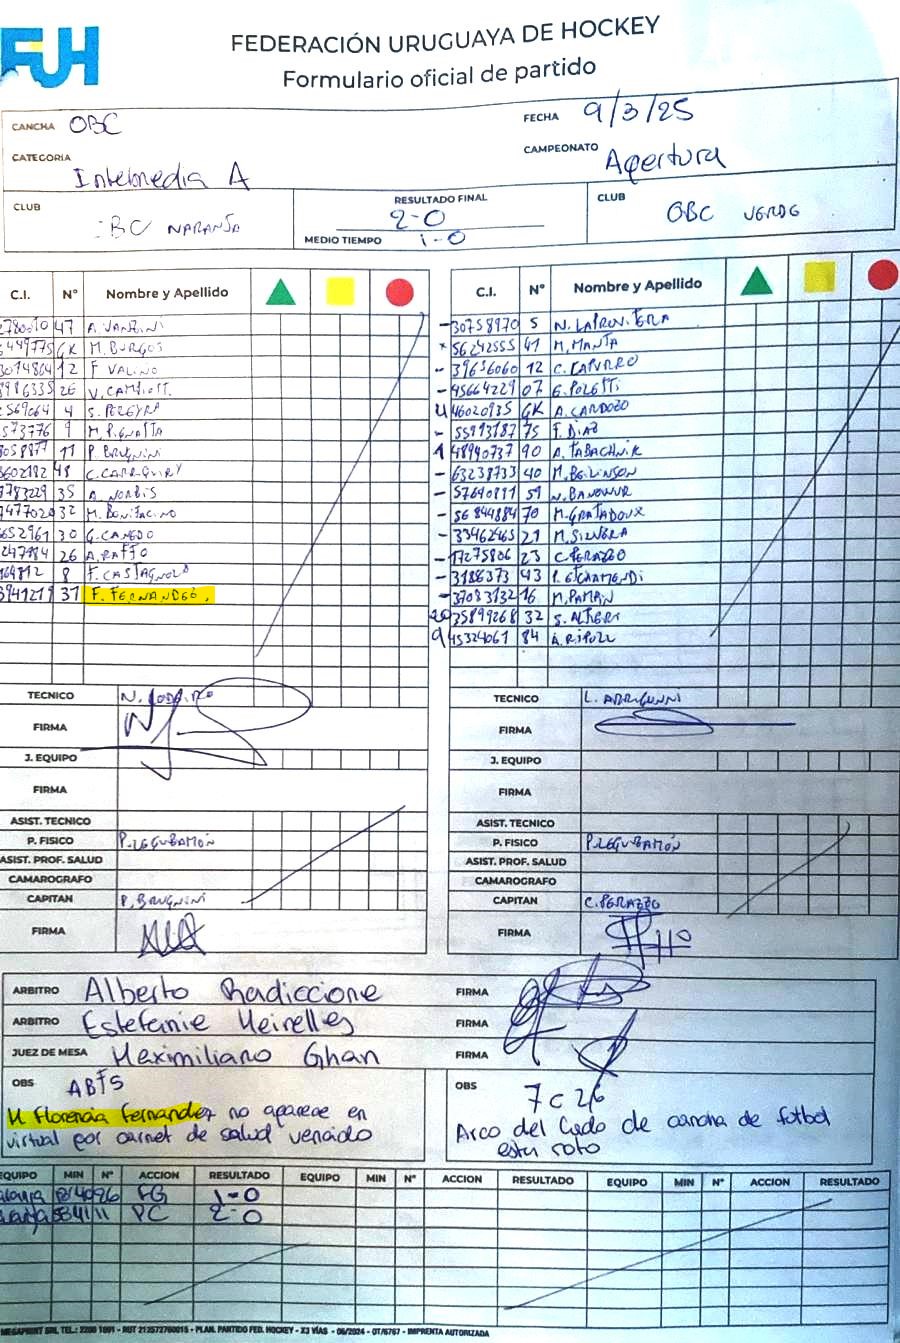 FUH
FEDERACIÓN URUGUAYA DE HOCKEY
Formulario oficial de partido
CANCHA OBC
FECHA 9/3/25
CATEGORIA Intermedia A
CAMPEONATO Apertura
CLUB BC NARANJA
RESULTADO FINAL 2-0
MEDIO TIEMPO 1-0
CLUB OBC VERDE
C.I. Nº Nombre y Apellido
47 A. VANZINI
GK M. BURGOS
12 F VALINO
26 V.
4 S. PEREYRA
9 M. PIGNATTA
11 P. BRUGNINI
48 C. CARRIQUIRY
35 A. NORBIS
32 M. BONIFACINO
30 G. CANEDO
26 A. RAFFO
8 F. CASTAGNOLO
31 F. FERNANDEZ.
C.I. Nº Nombre y Apellido
30758970 5 N.
56242555 41 M. MANTA
39656060 12 C. CAPURRO
45664229 07 G. POLETTI
46020935 GK A. CARDOZO
55913187 75 F. DIAZ
48940737 90 A. TABACHNIK
63238733 40 M. BEILINSON
57640891 59 N.
56844884 70 M. GRATADOUX
33462465 21 M. SILVERA
17275806 23 C. PERAZZO
3186373 43 P. ETCHAMENDI
37083132 16 M. PAMAN
35899268 32 S. ALTIERI
45324061 84 A. RIPOLL
TECNICO N.
FIRMA
J. EQUIPO
FIRMA
ASIST. TECNICO
P. FISICO P. LEGUBAMÓN
ASIST. PROF. SALUD
CAMAROGRAFO
CAPITAN P. BRUGNINI
FIRMA
TECNICO L. ARRIGUNNI
FIRMA
J. EQUIPO
FIRMA
ASIST. TECNICO
P. FISICO P. LEGUBAMÓN
ASIST. PROF. SALUD
CAMAROGRAFO
CAPITAN C. PERAZZO
FIRMA
ARBITRO Alberto Radiccione FIRMA
ARBITRO Estefanie Meirelles FIRMA
JUEZ DE MESA Maximiliano Ghan FIRMA
OBS ABFS
M Florencia Fernandez no aparece en
virtual por carnet de salud vencido
OBS 7c26
Arco del lado de cancha de futbol
esta roto
EQUIPO MIN Nº ACCION RESULTADO EQUIPO MIN Nº ACCION RESULTADO EQUIPO MIN Nº ACCION RESULTADO
FG 1-0
PC 2-0
MEGAPRINT SRL TEL.: 2200 1091 - RUT 212572760015 - PLAN. PARTIDO FED. HOCKEY - X3 VÍAS - 06/2024 - OT/6767 - IMPRENTA AUTORIZADA